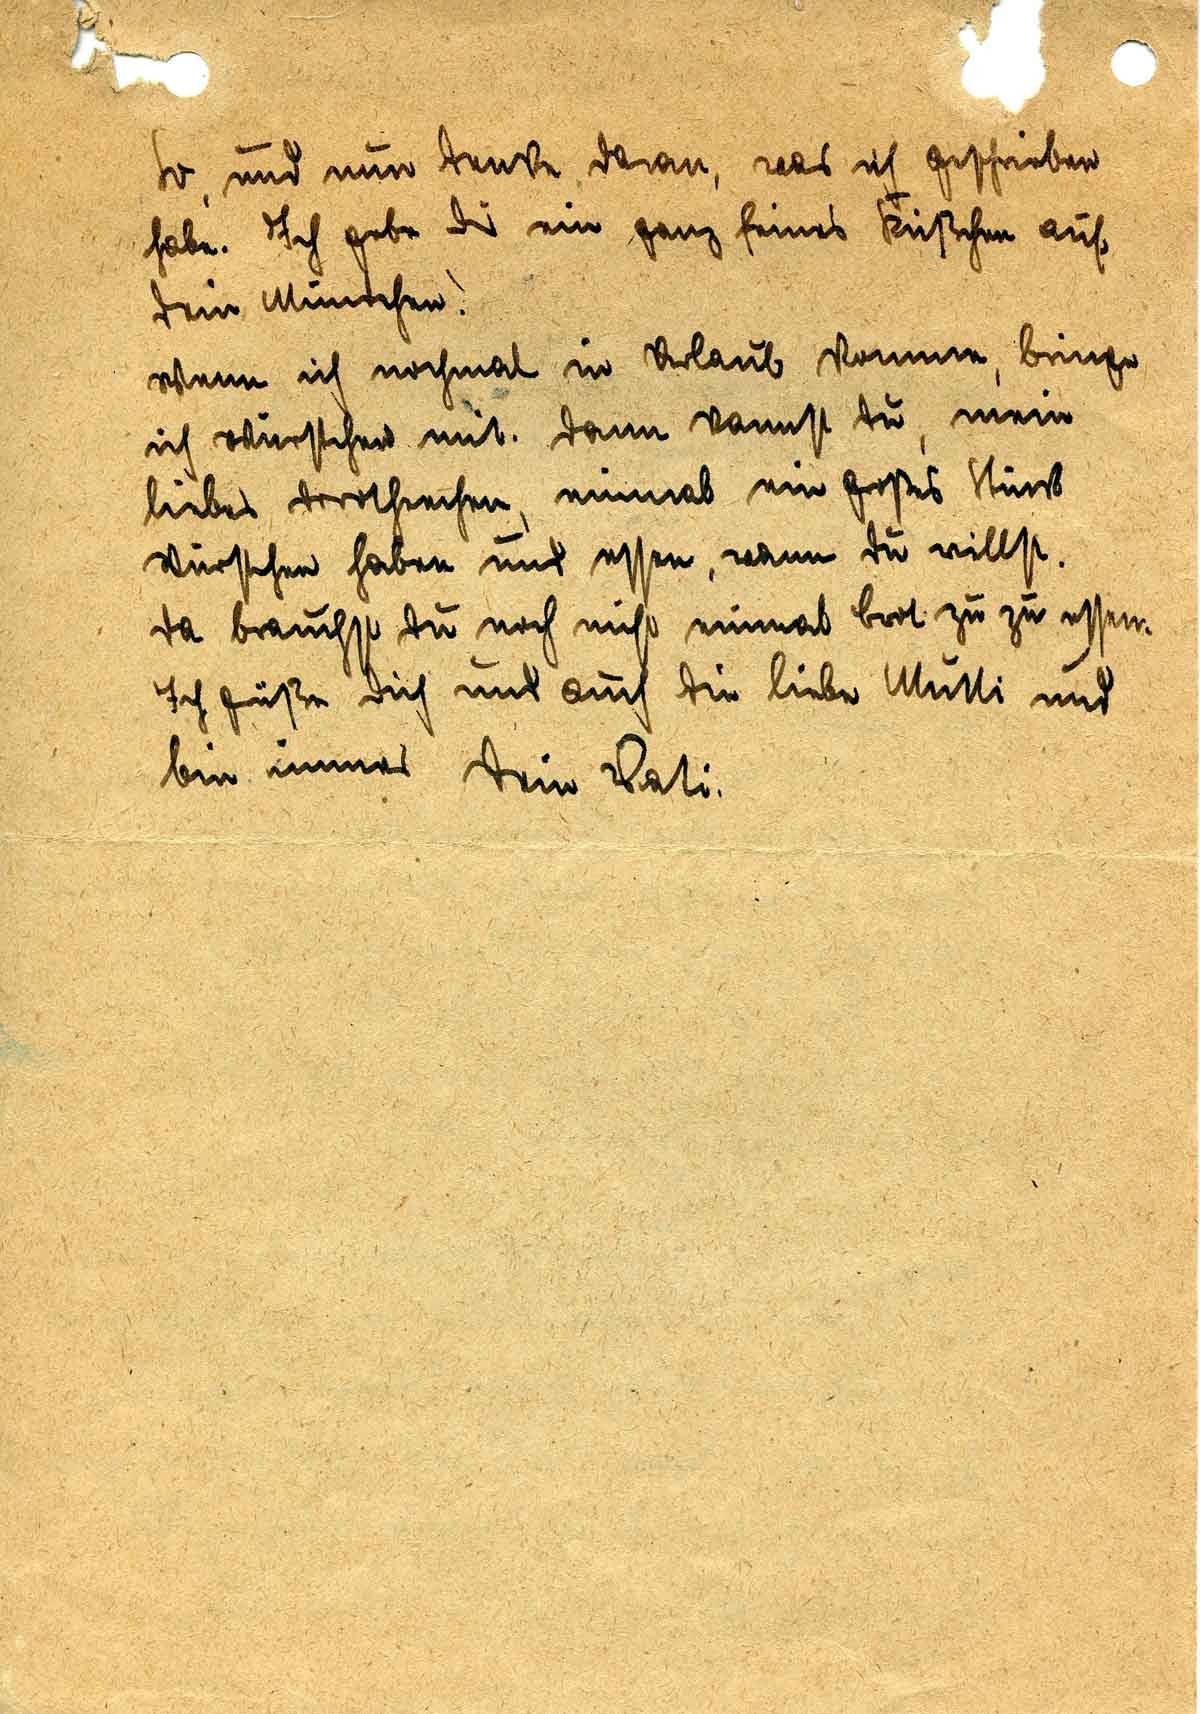 So, und nun denke daran, was ich geschrieben
habe. Ich gebe Dir ein ganz feines Küßchen auf
dein Mündchen!
Wenn ich nochmal in Urlaub komme, bringe
ich Würstchen mit. Dann kannst Du, mein
liebes Dorotheechen, einmal ein großes Stück
Würstchen haben und essen, wann Du willst.
Da brauchst Du noch nicht einmal Brot zu zu essen.
Ich grüße Dich und auch die liebe Mutti und
bin immer Dein Vati.